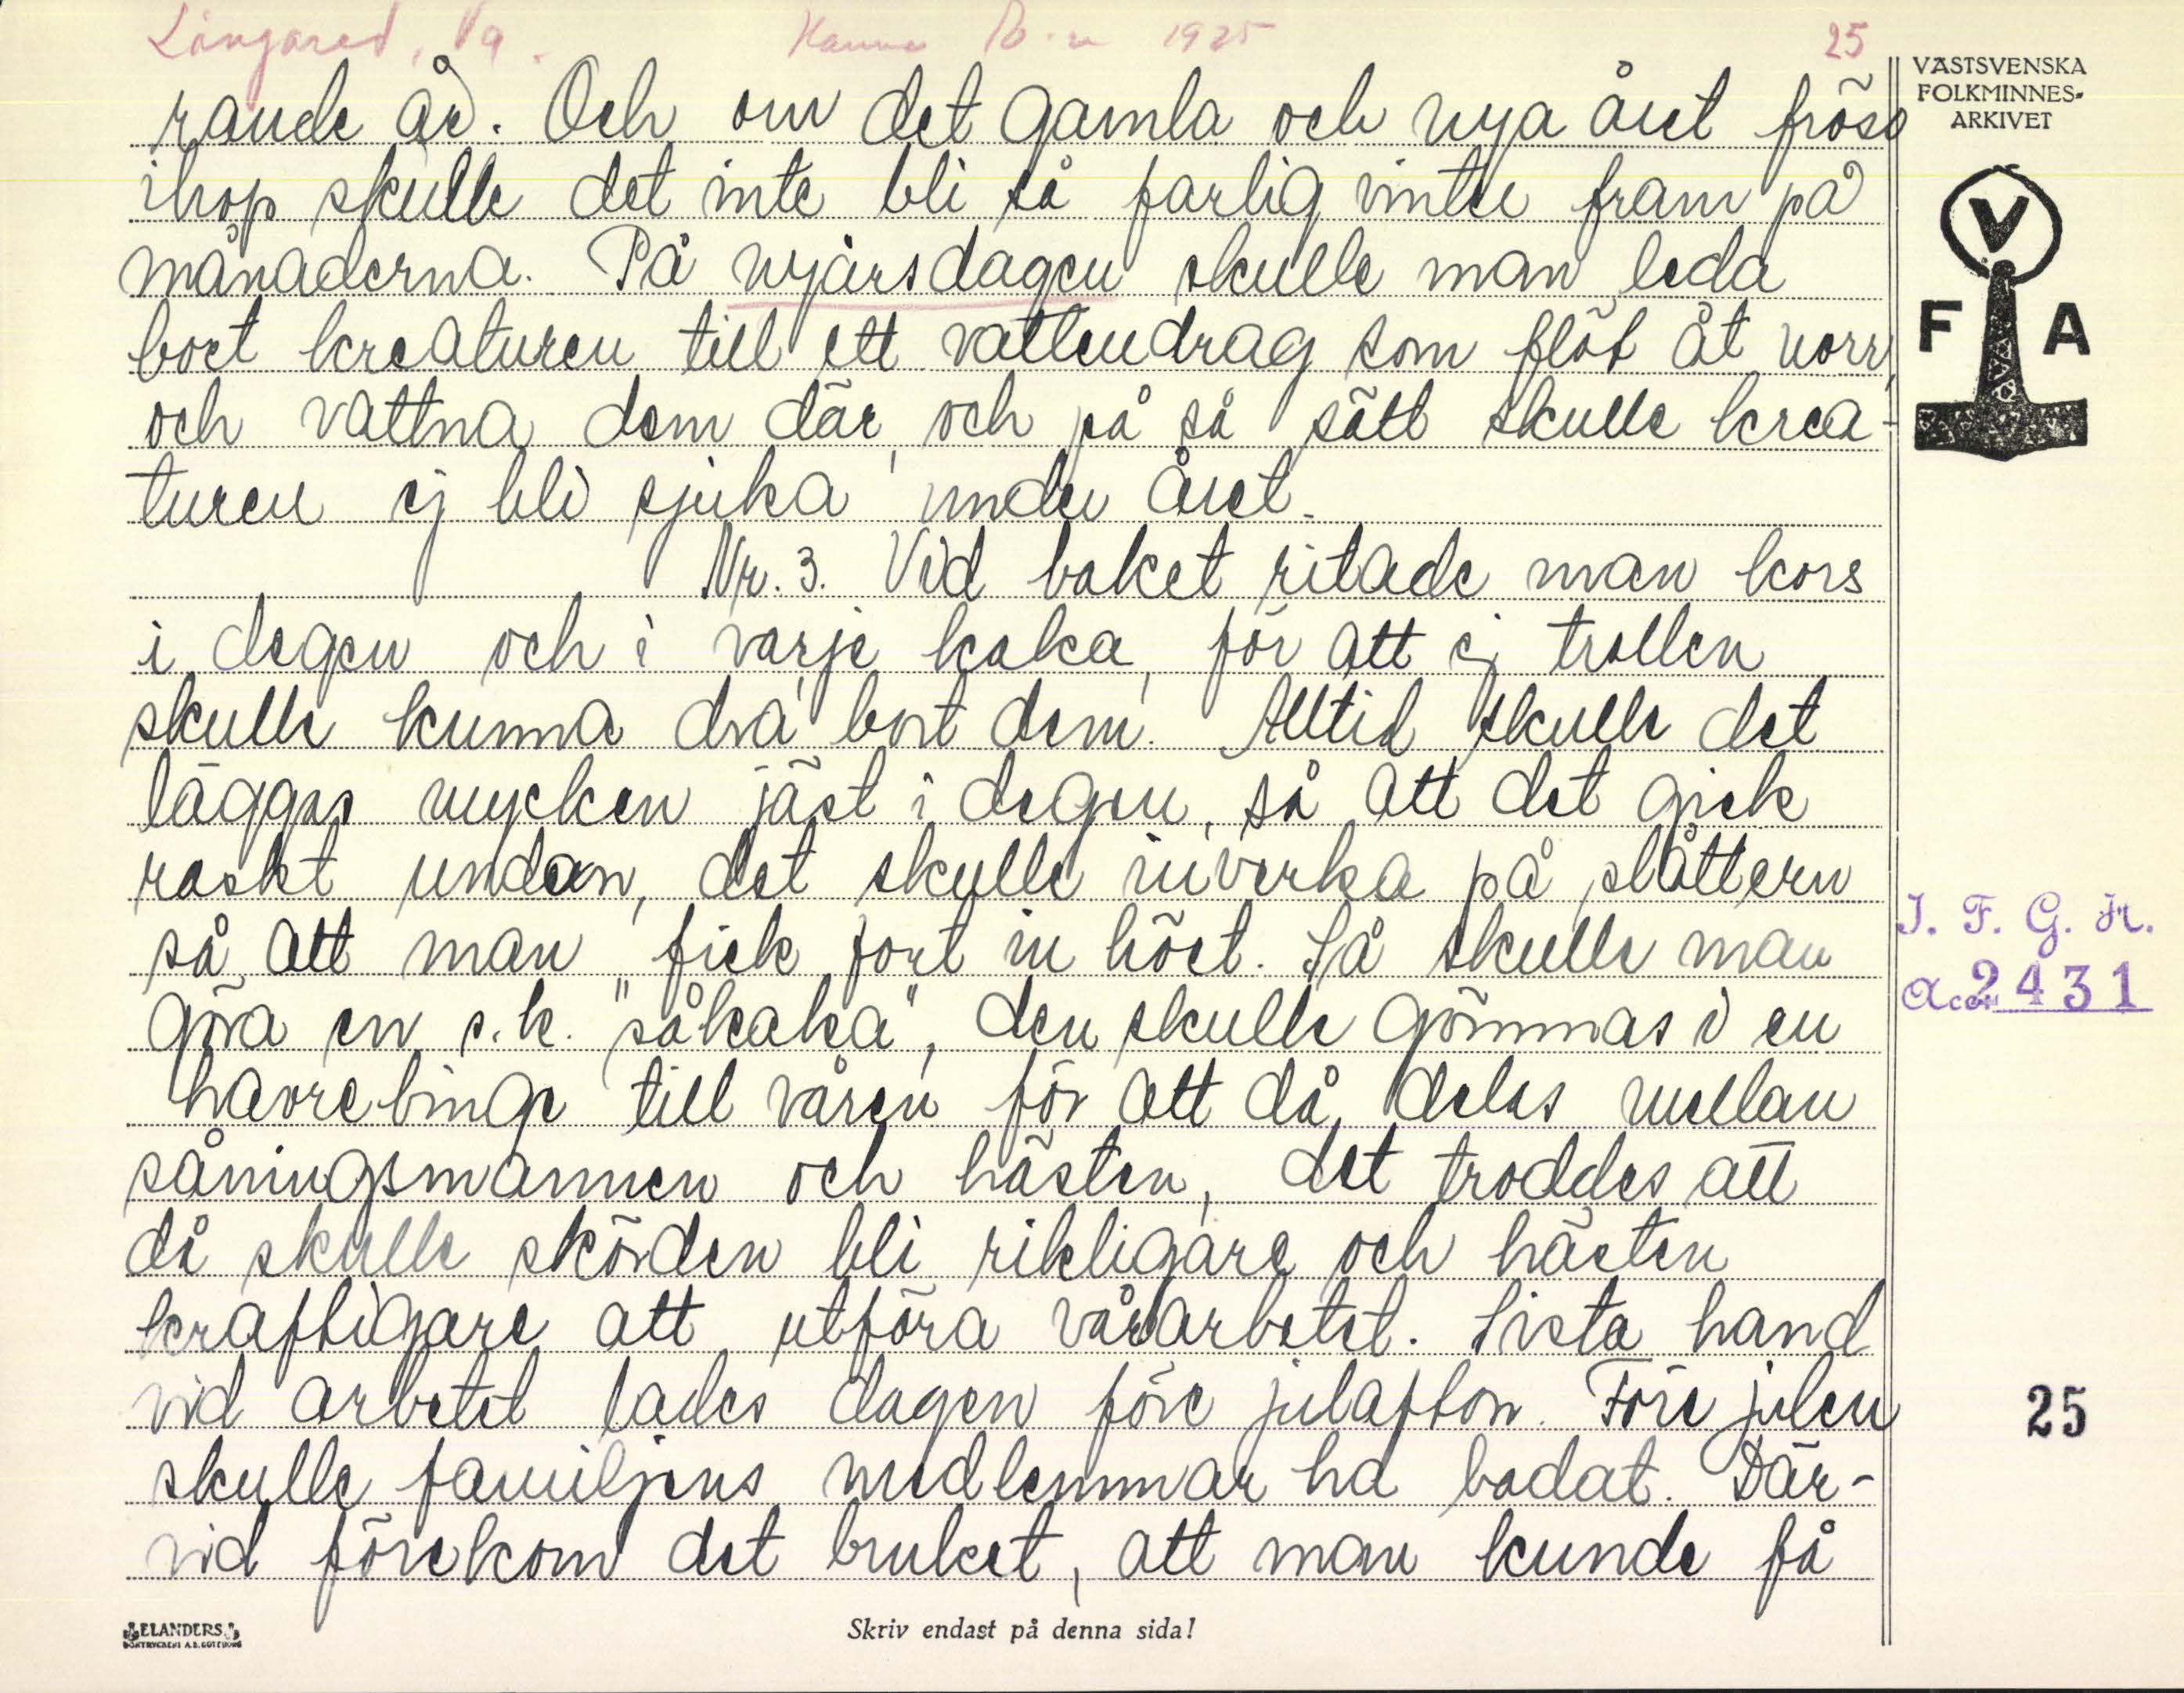 Långared. Vg. 1925 25
VÄSTSVENSKA
FOLKMINNES-
ARKIVET
V
F A
rande år. Och om det gamla och nya året frösο
ihop skulle det inte bli så farlig vinter fram på
månaderna. På nyårsdagen skulle man leda
bort kreaturen till ett vattendrag som flöt åt norr,
och vattna dem där, och på så sätt skulle krea-
turen ej bli sjuka under året.
Nr. 3. Vid baket ritade man kors
i degen och i varje kaka, för att ej trollen
skulle kunna dra bort dem. Alltid skulle det
läggas mycken jäst i degen, så att det gick
raskt undan, det skulle inverka på slåttern
så att man fick fort in höet. Så skulle man
göra en s.k. "såkaka", den skulle gömmas i en
havrebinge till våren för att då delas mellan
såningsmannen och hästen, det troddes att
då skulle skörden bli rikligare och hästen
kraftigare att utföra vårarbetet. Sista hand
vid arbetet lades dagen före julafton. Före julen
skulle familjens medlemmar ha badat. Där-
vid förekom det bruket, att man kunde få
I. F. G. H.
Acc. 2431
25
ELANDERS
BOKTRYCKERI A.B. GÖTEBORG
Skriv endast på denna sida!